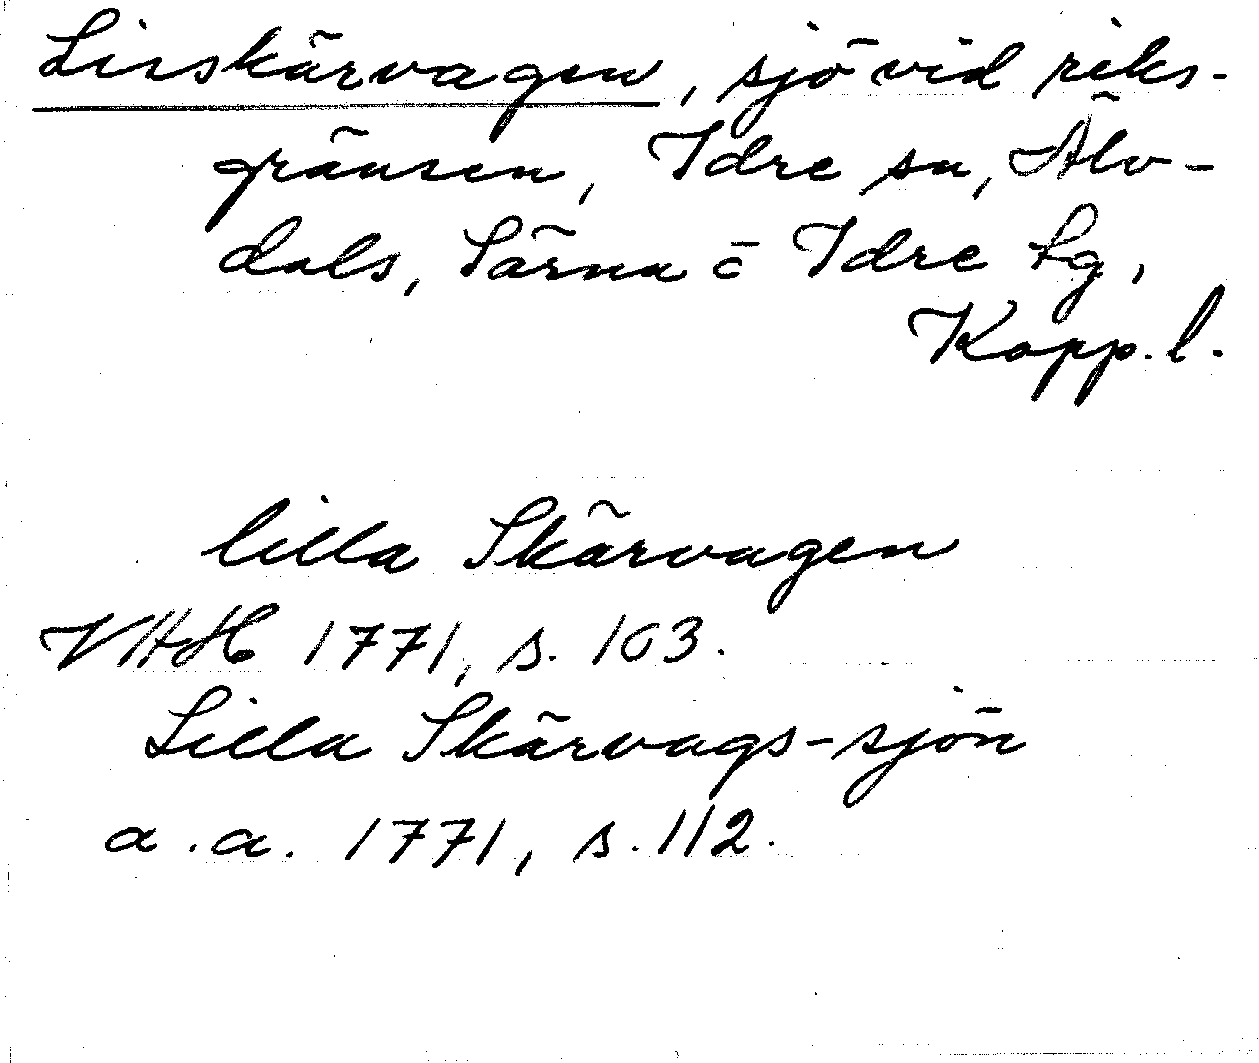 Lisskärvagen, sjö vid riks-
gränsen, Idre sn, Älv-
dals, Särna o Idre tg,
Kopp. l.
lilla Skärvagen
VAH 1771, s. 103.
Lilla Skärvags-sjön
a.a. 1771, s. 112.